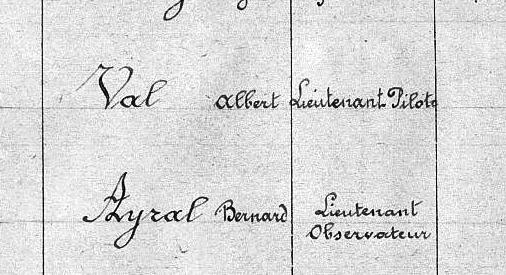 Val Albert Lieutenant Pilote
Ayral Bernard Lieutenant
Observateur